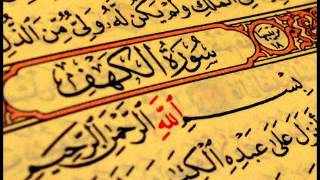 الملك ولم يكن له ولي من الذل
سورة الكهف
بسم الله الرحمن الرحيم
أنزل على عبده الكتاب